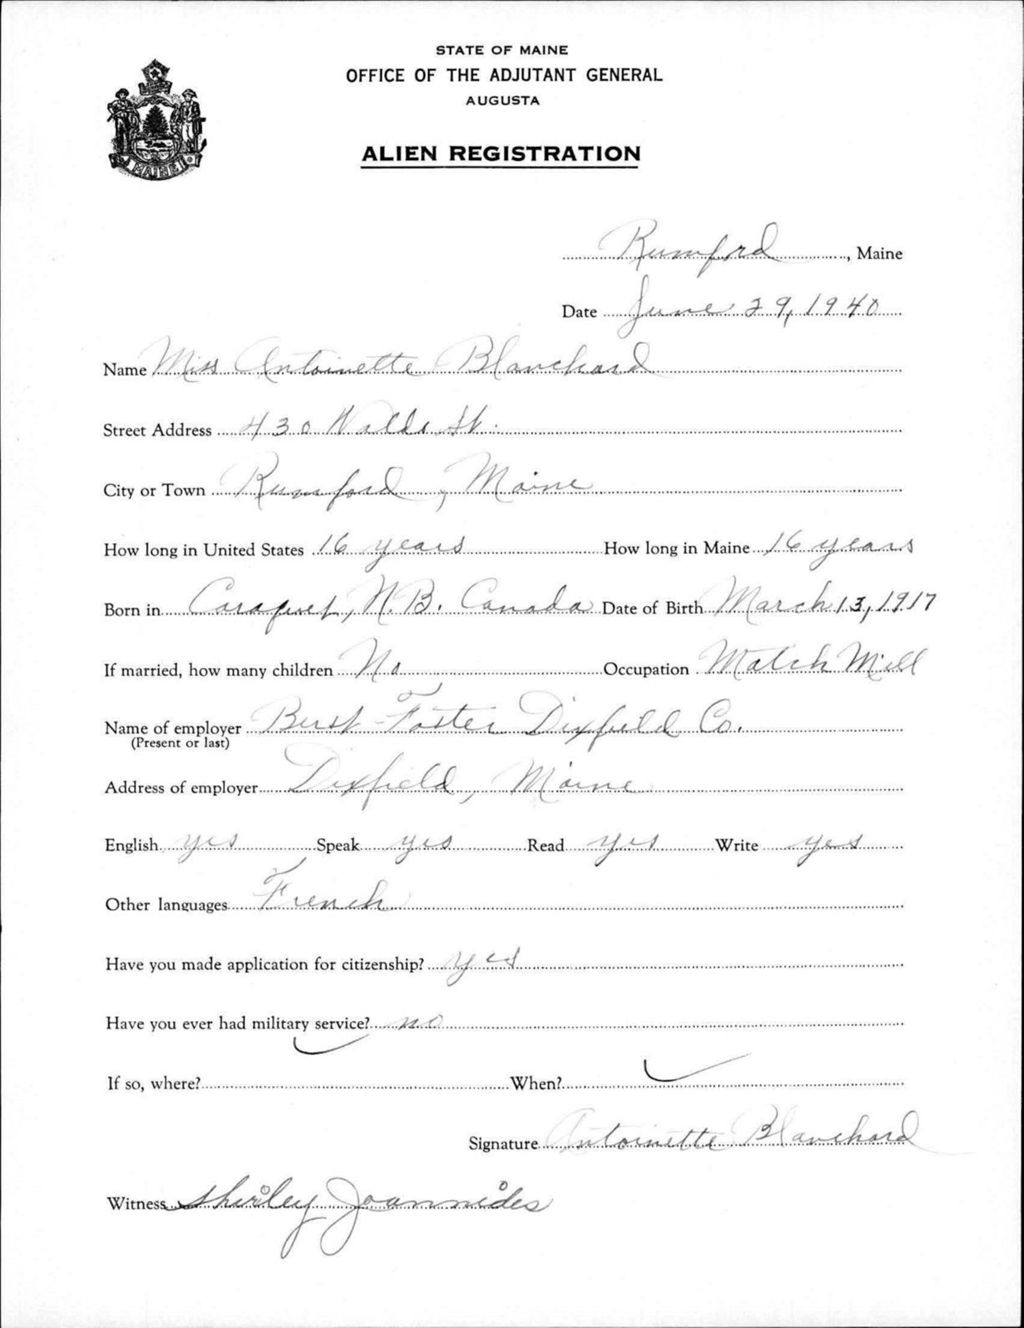 STATE OF MAINE
OFFICE OF THE ADJUTANT GENERAL
AUGUSTA
ALIEN REGISTRATION
MAINE
Rumford, Maine
Date June 29, 1940
Name Miss Antoinette Blanchard
Street Address 430 Waldo St.
City or Town Rumford, Maine
How long in United States 16 years How long in Maine 16 years
Born in Caraquet, N.B. Canada Date of Birth March 13, 1917
If married, how many children No Occupation Match Mill
Name of employer Berst-Foster Dixfield Co.
(Present or last)
Address of employer Dixfield, Maine
English yes Speak yes Read yes Write yes
Other languages French
Have you made application for citizenship? yes
Have you ever had military service? no
If so, where? When?
Signature Antoinette Blanchard
Witness Shirley Joannides